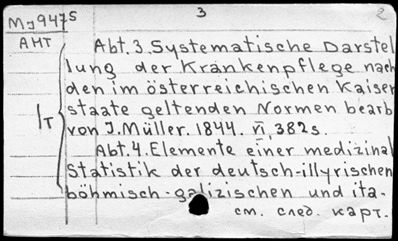 3 2
Mg 947 5
AHT Abt. 3. Systematische Darstel
lung der Krankenpflege nach
den im österreichischen Kaiser
staate geltenden Normen bearb
IT von J. Müller. 1844. VI, 382 s.
Abt. 4. Elemente einer medizinal
Statistik der deutsch-illyrischen
böhmisch-galizischen und ita-
см. след. карт.